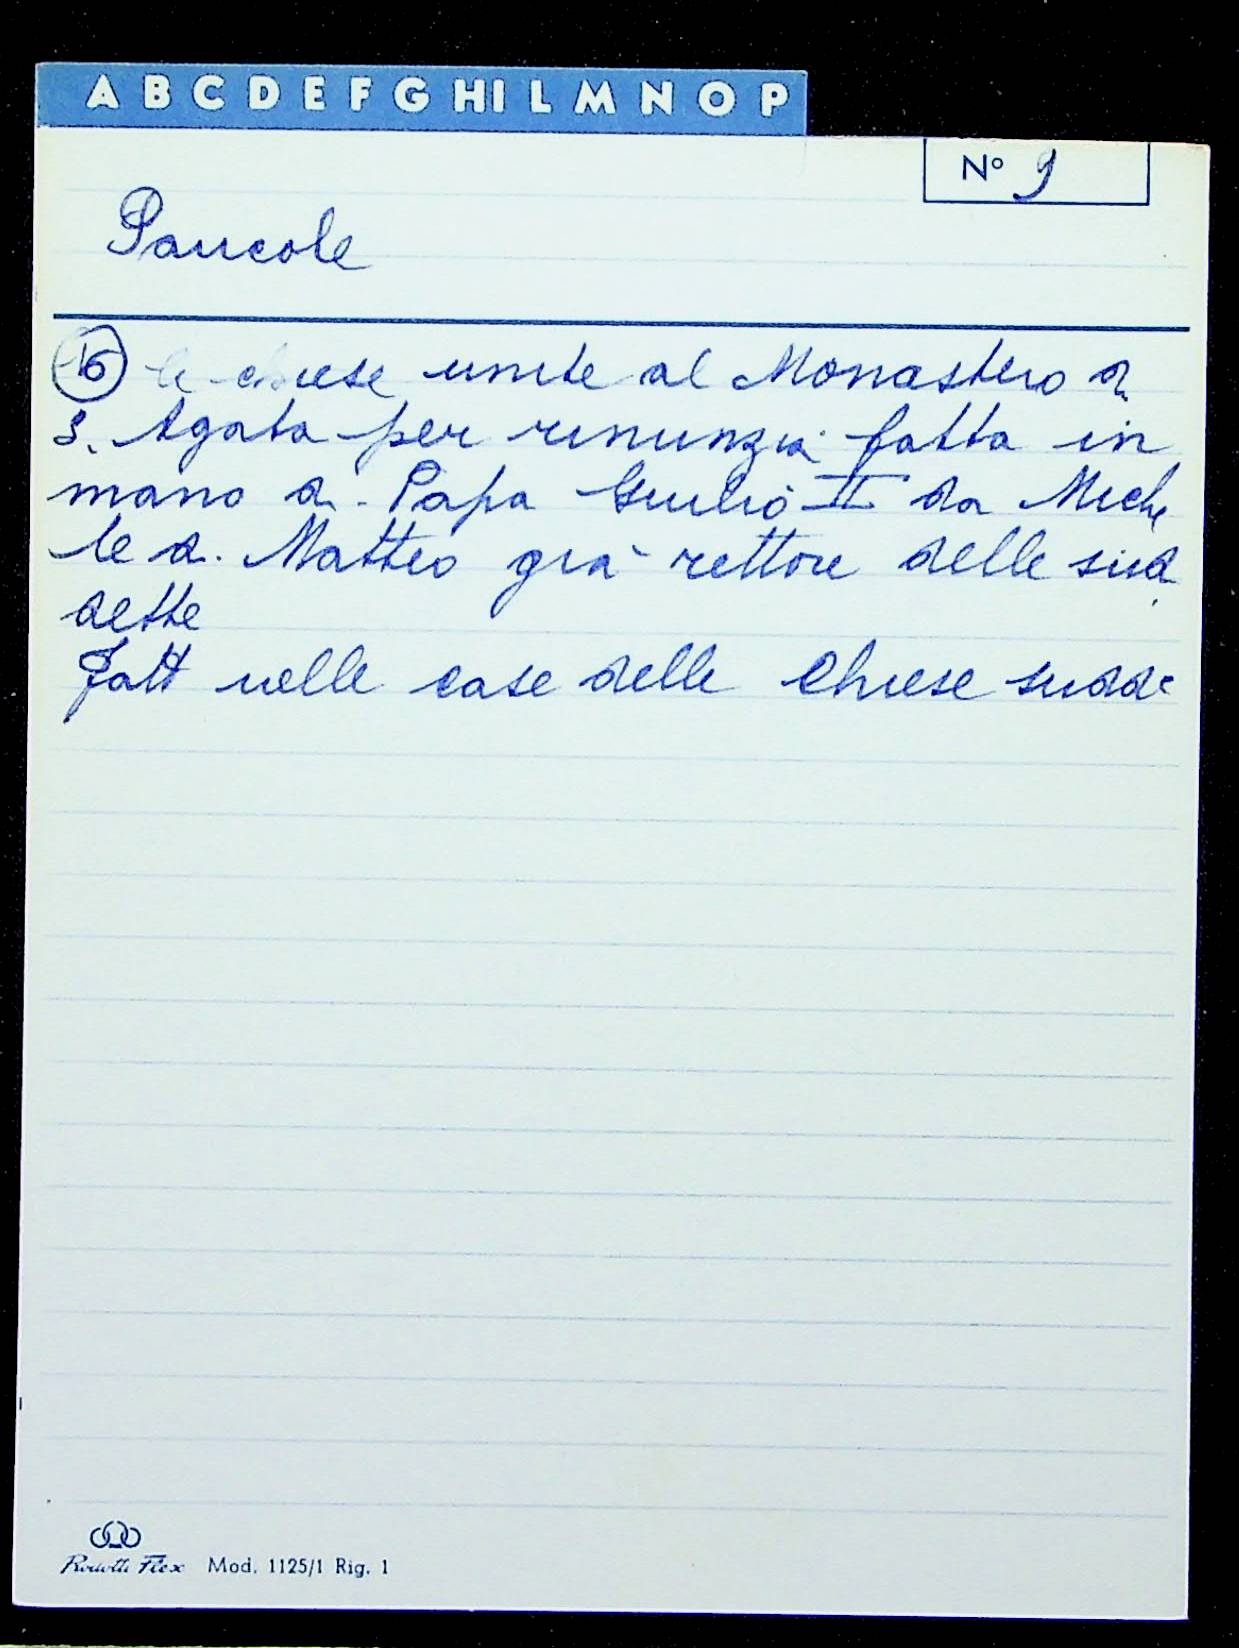 A B C D E F G HI L M N O P
Nº 9
Paucole
16 le chiese unite al Monastero di
S. Agata per rinunzia fatta in
mano di Papa Giulio II da Miche
le di Matteo già rettore delle sud
dette
Fatt nelle case delle Chiese sudde
Mod. 1125/1 Rig. 1